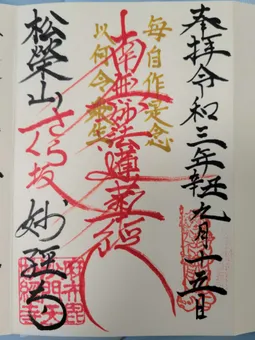 奉拝 令和三年辛丑九月十五日
毎自作是念
以何令衆生
南無妙法蓮華経
さくら坂
松榮山 妙經寺